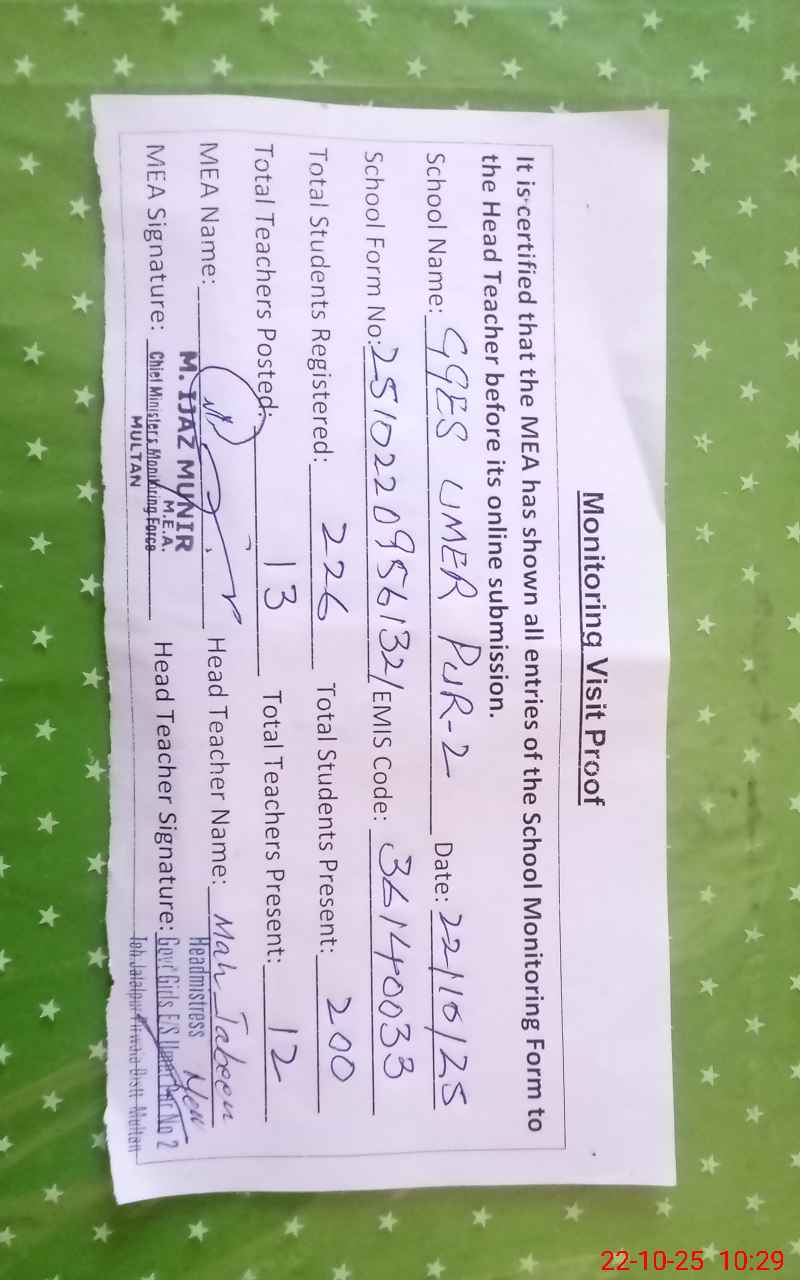 Monitoring Visit Proof
It is certified that the MEA has shown all entries of the School Monitoring Form to
the Head Teacher before its online submission.
School Name: GGES UMER PUR-2 Date: 22/10/25
School Form No: 2510220956132/ EMIS Code: 36140033
Total Students Registered: 226 Total Students Present: 200
Total Teachers Posted: 13 Total Teachers Present: 12
MEA Name: Head Teacher Name: Mah Jabeen
M. IJAZ MUNIR Headmistress
M.E.A.
MEA Signature: Chief Ministers Monitoring Force Head Teacher Signature: Govt Girls E/S Umar Pur No 2
MULTAN Teh Jalalpur Pirwala Distt Multan
22-10-25 10:29